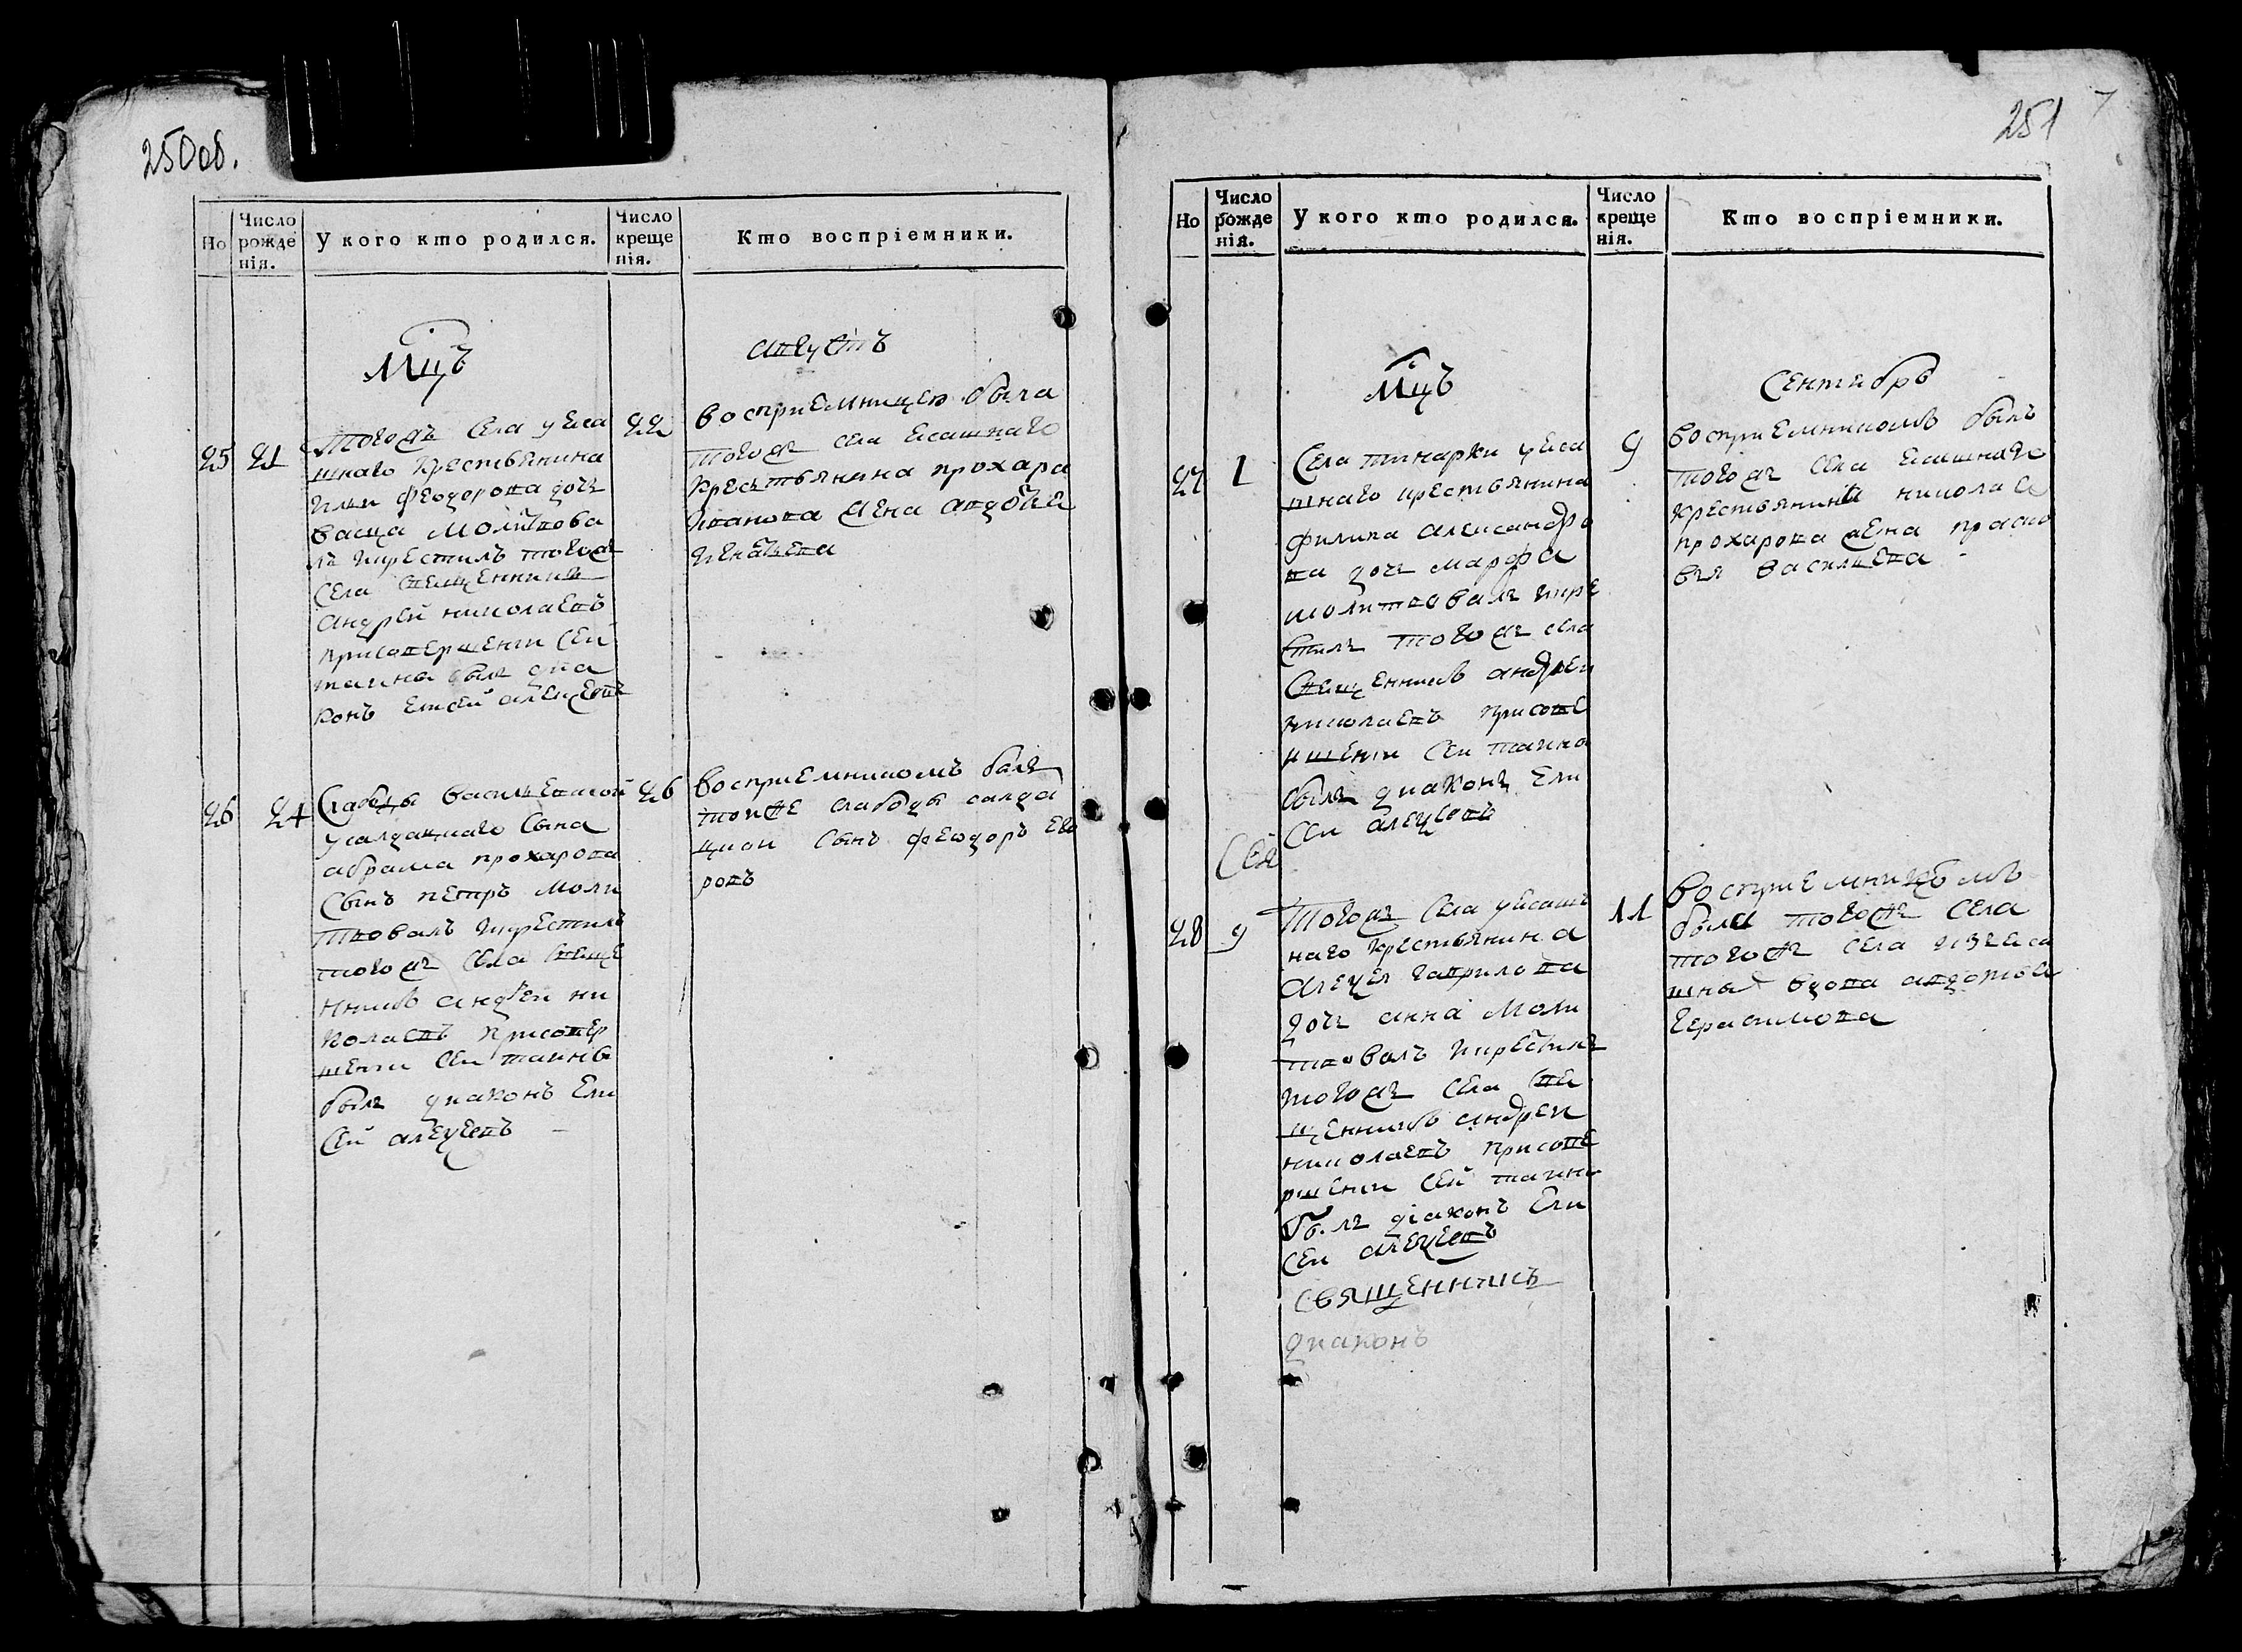 250об.
Но
Число рожде нія.
У кого кто родился.
Число креще нія.
Кто воспріемники.
Мцъ
августъ
25
21
Тогожъ села уяса
шнаго крестьянина
Ильи феодорова дочь
васса Молитвова
лъ икрестилъ тогожъ
села священникъ
Андрей николаевъ
присовершении сей
таины былъ диа
конъ елисей алексеевъ
22
восприемницею была
тогожъ села ясашнаго
крестьянина прохара
Иванова жена авдотья
игнатьева
26
24
Слободы васильевской
усалдацкаго сына
абрама прохарова
сынъ петръ моли
твовалъ икрестилъ
тогожъ села свяще
нникъ андрей ни
колаевъ присовер
шении сей таины
былъ диаконъ ели
сей алексеевъ
26
восприемникомъ былъ
тойже слабоды салда
цкой сынъ феодоръ его
ровъ
251
7
Но
Число рожде нія.
У кого кто родился.
Число креще нія.
Кто воспріемники.
Мцъ
Сентябръ
27
1
Села тинарки уяса
шнаго крестьянина
филипа александро
ва дочь марфа
молитвовалъ икре
стилъ тогожъ села
священникъ андрей
николаевъ присове
ршении сей таины
былъ диаконъ ели
сей алексеевъ
9
восприемникомъ былъ
тогожъ села ясашнаго
крестьянина николая
прохарова жена праско
вья васильева
28
9
Тогожъ села уясаш
наго крестьянина
алексея гаврилова
дочь анна Моли
твовалъ икрестилъ
тогожъ села свя
щенникъ андрей
николаевъ присове
ршении сей таины
былъ діаконъ ели
сей алексеевъ
священникъ
диаконъ
11
восприемникомъ
была тогожъ села
тогожъ села изъяса
шныхъ вдова авдотья
герасимова